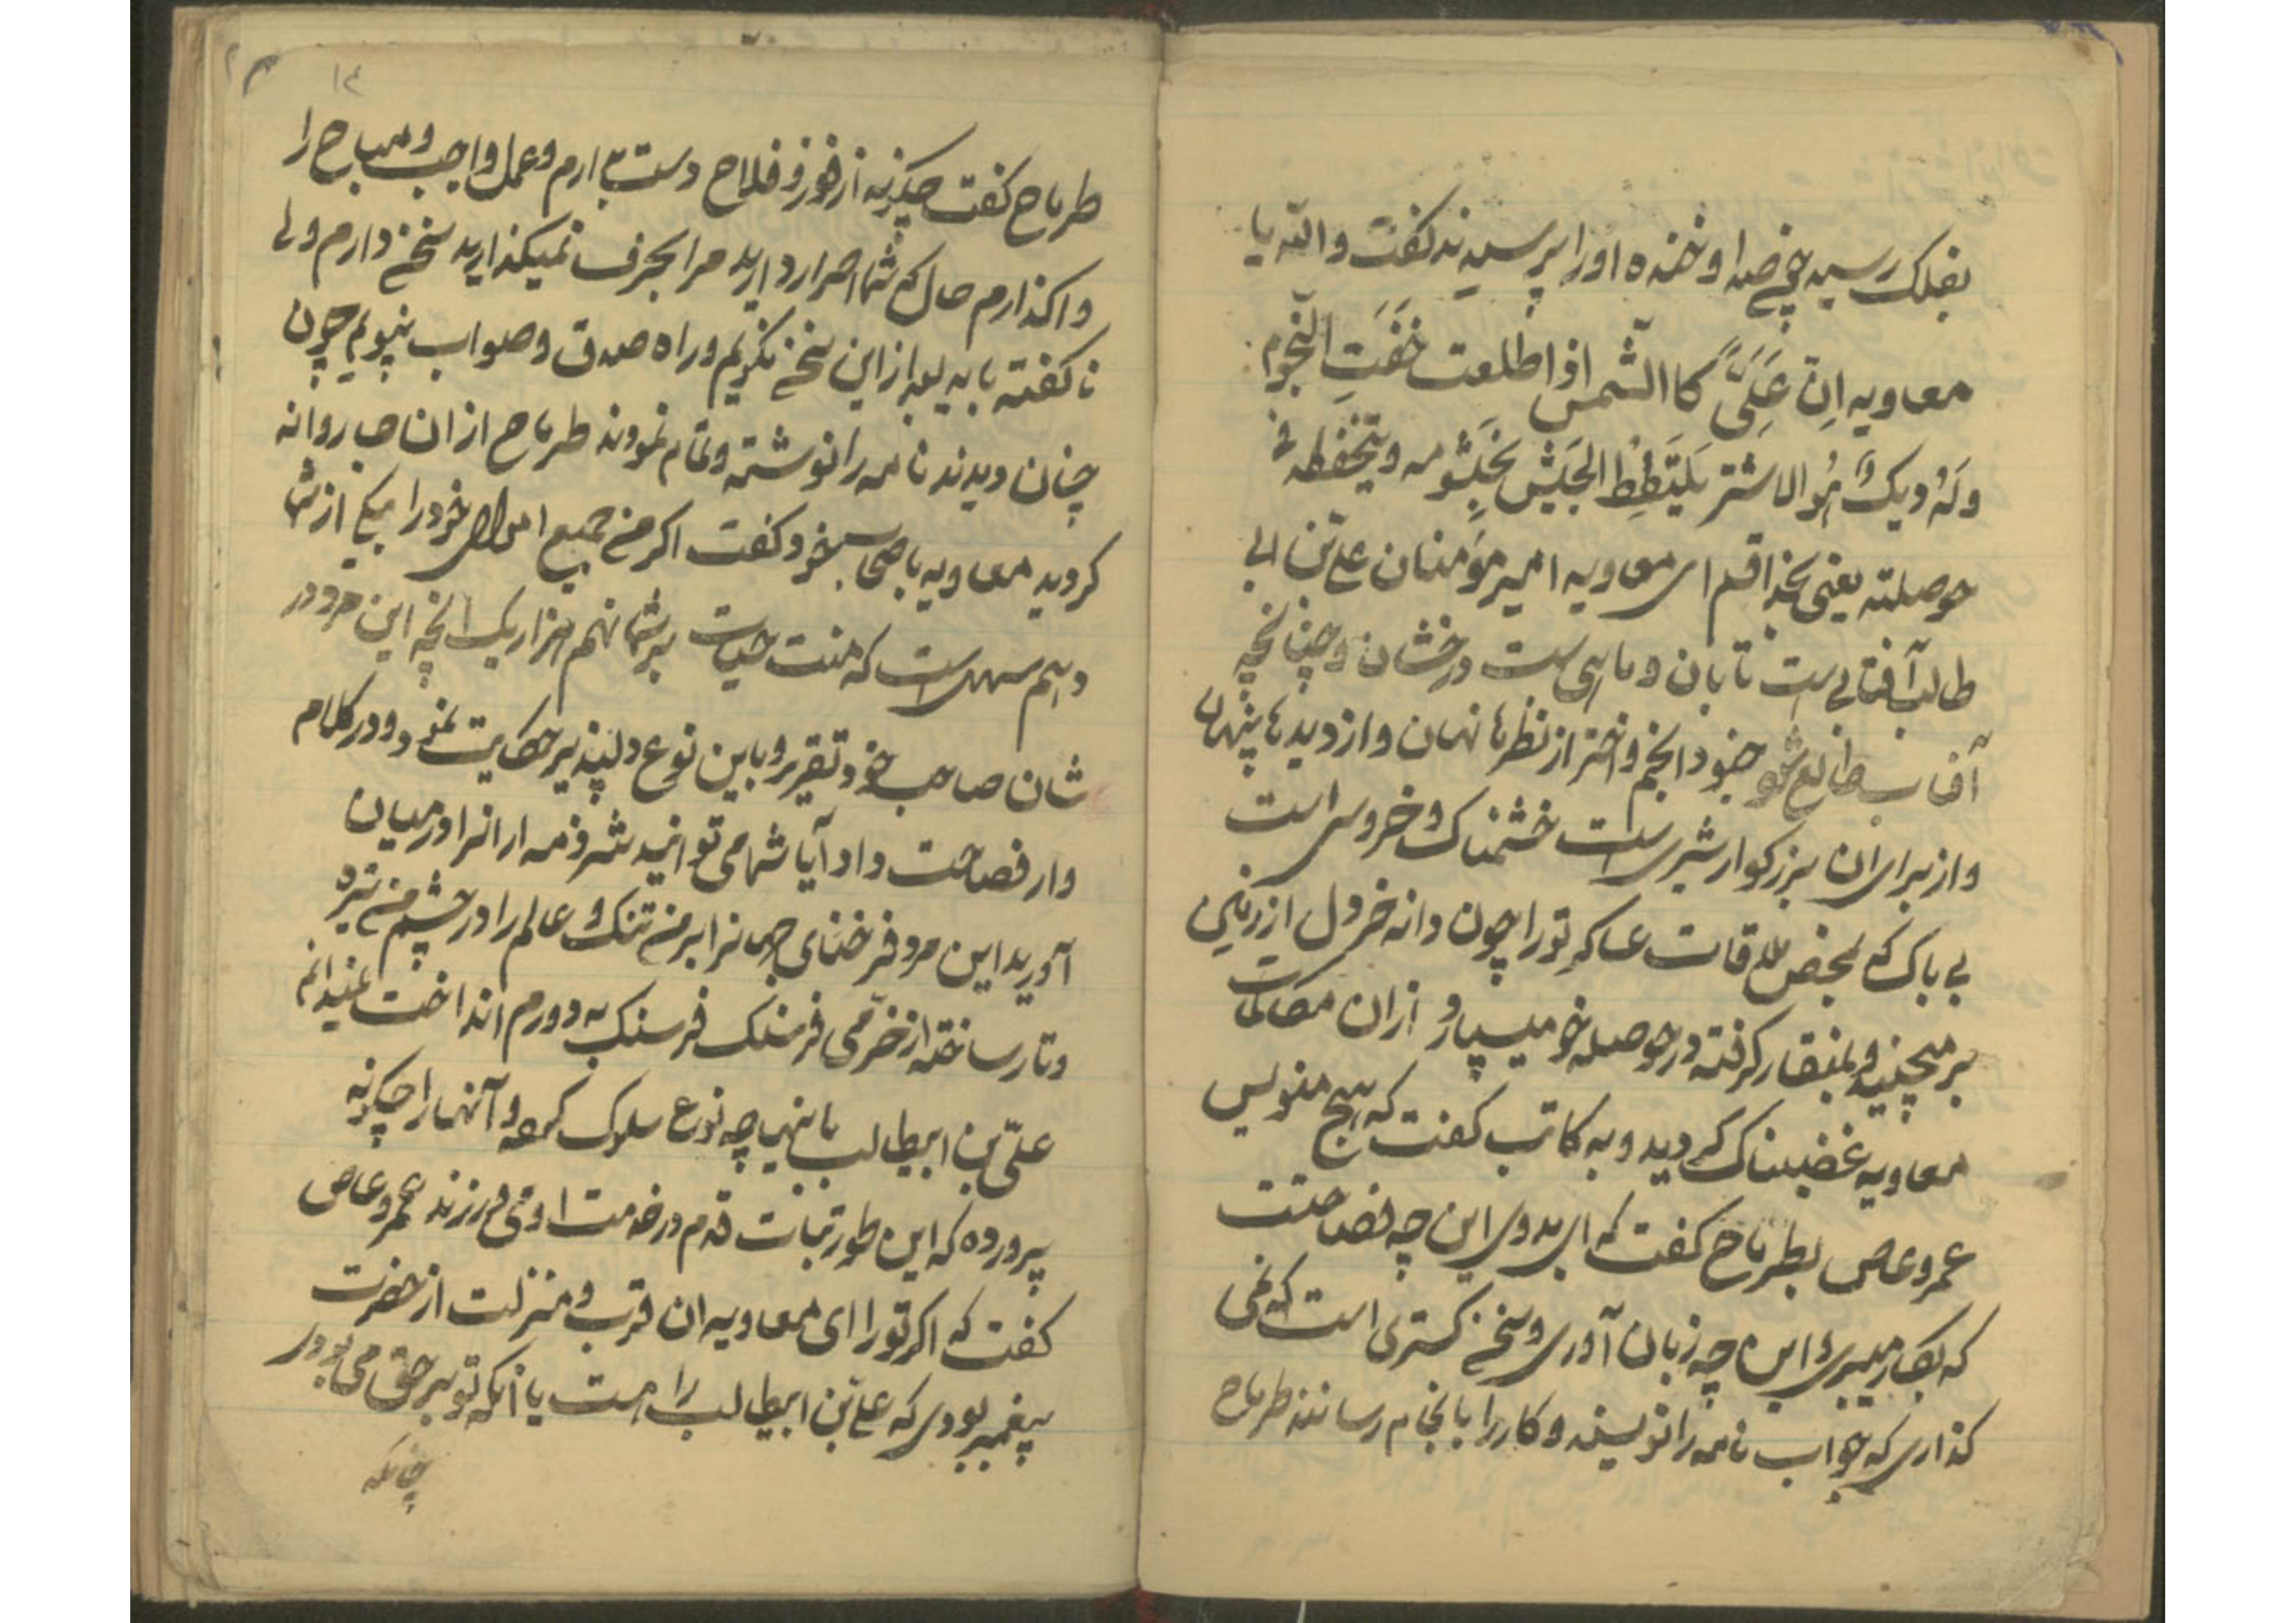 بفلک رسید چی صدا و خنده او را پرسیدند گفت والله یا
معاویه اِن عَلَیً کا الشمس اذا طلعت خَفَتِ النجوم
وَلَهُ ویک هُوالاشتر یَلتَقِطُ الجَیش بخیشومه ویتحفظه فی
حوصلته یعنی بخدا قسم ای معاویه امیر مؤمنان علی بن ابی
طالب آفتابی است تابان و ماهی است درخشان و چنانچه
آفتاب طالع شود جنود انجم و اختر از نظرها نهان و از دیدها پنهان
و از برای ان بزرکوار شیری است خشمناک و خروسی است
بی باک که بمحض ملاقات عساکر تو را چون دانه خردل از زمین
برمیچیند و بمنقار کرفته در حوصله خو میسپارد از ان مکالمات
معاویه غضبناک کردید و به کاتب کفت که هیچ منویس
عمروعاص بطرماح کفت که ای بدوی این چه فصاحتت
که بکار میبری و این چه زبان آوری و سخن کستری است که نمی
کذاری که جواب نامه را نویسند و کار را بانجام رسانند طرماح
۱۴
طرماح کفت چکونه از فوز و فلاح دست بدارم و عمل واجب و مباح را
واکذارم حال که شما اصرار دارید مرا بحرف نمیکذارید سخن دارم ولی
ناکفته باید بعد از این سخن نکویم و راه صدق و صواب نپویم چون
چنان دیدند نامه را نوشته و تمام نمودند طرماح از ان جا روانه
کردید معاویه باصحاب خود کفت اکر من جمیع اموال خود را بیکی از شما
دهم سهل است که منت حیات بر شما نهم هزار یک انچه این مرد در
شان صاحب خود تقریر و باین نوع دلپذیر حکایت نمود و در کلام
وار فصاحت داد آیا شما می توانید شرذمه از انرا در میان
آورید این مرد فرخنای جهانرا بر من تنک و عالم را در چشم من تیره
و تار ساخته از خرّمی فرسنک فرسنک به دورم انداخت نمیدانم
علیّ بن ابیطالب باینها چه نوع سلوک کرده و آنها را چکونه
پرورده که این طور ثبات قدم در خدمت او می ورزند عمروعاص
کفت که اکر تو را ای معاویه ان قرب و منزلت از حضرت
پیغمبر بودی که علی بن ابیطالب را هست یا آنکه تو بر حق می بودی
چنانکه